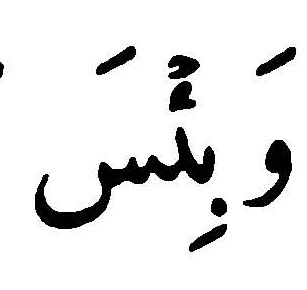 وَبِئْسَ